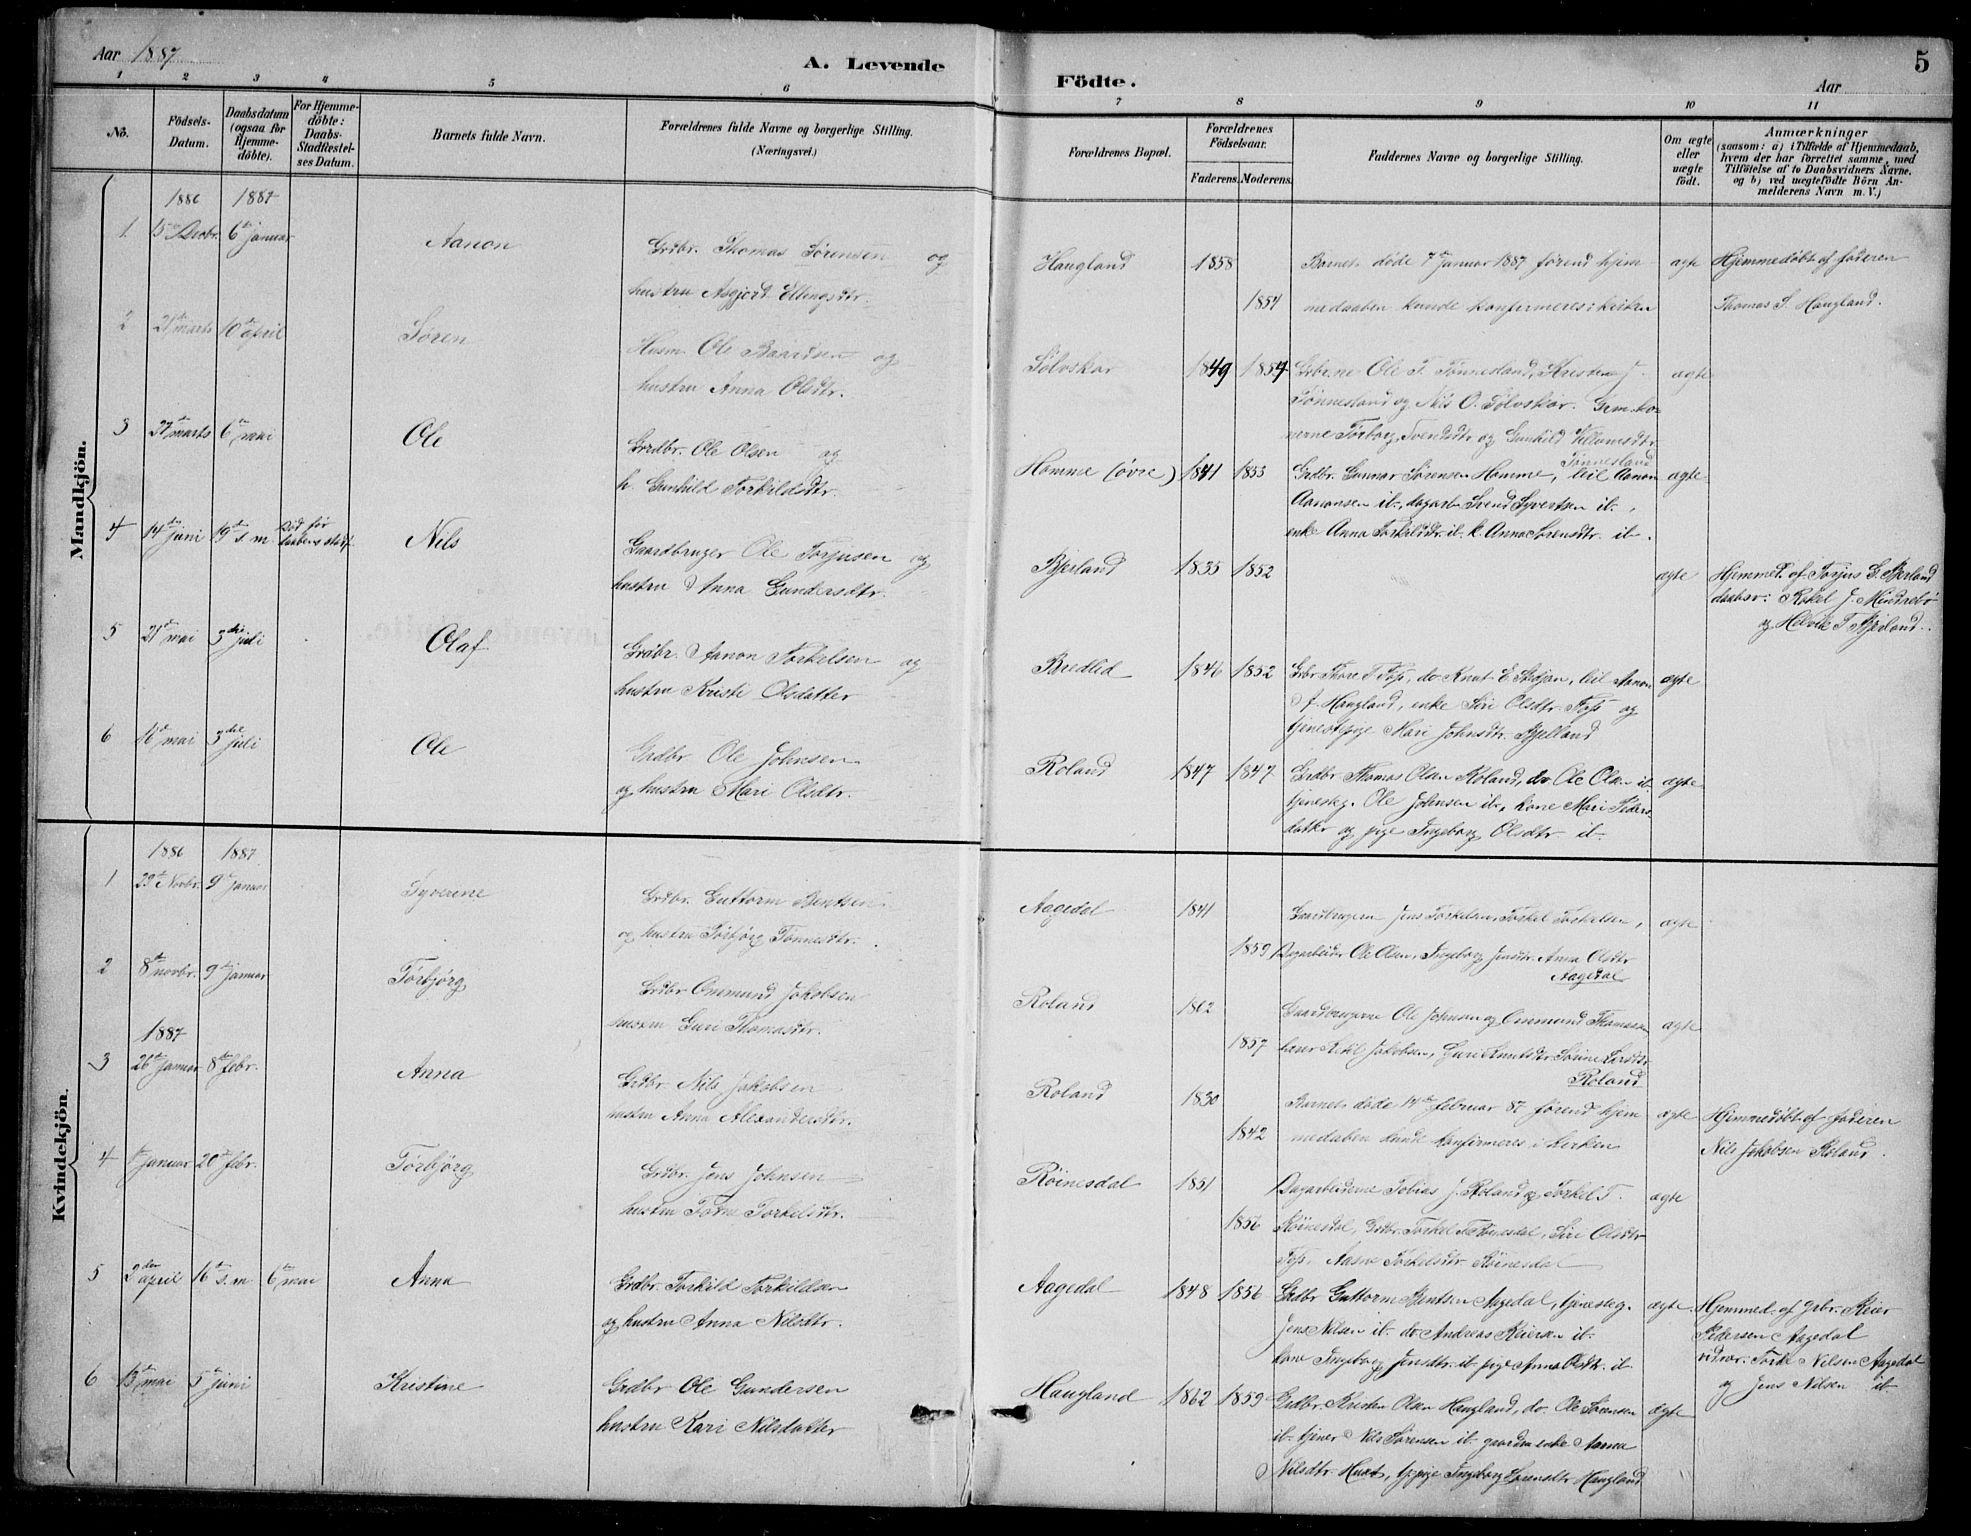 Aar 1887
A. Levende
Födte.
Aar
5
1
2
3
4
5
6
7
8
9
10
11
No.
Födsels-
Datum.
Daabsdatum
(ogsaa for
Hjemme-
döbte).
For Hjemme-
döbte:
Daabs-
Stadfæstel-
ses Datum.
Barnets fulde Navn.
Forældrenes fulde Navne og borgerlige Stilling.
(Næringsvei.)
Forældrenes Bopæl.
Forældrenes
Födselsaar.
Faderens.
Moderens.
Faddernes Navne og borgerlige Stilling.
Om ægte
eller
uægte
födt.
Anmærkninger
(saasom: a) i Tilfælde af Hjemmedaab,
hvem der har forrettet samme, med
Tilföielse af to Daabsvidners Navne,
og b) ved uægtefödte Börn An-
melderens Navn m. V.)
Mandkjön.
1886 1887
1. 15 Decbr. 6te januar Aanon
Grdbr. Thomas Sørensen og
hustru Asgjert Ellingsdtr.
Haugland 1858
1854
Barnet døde 7de januar 1887 førend hjem
medaaben kunde konfirmeres i kirken
ægte
Hjemmedøbt af faderen
Thomas S. Haugland.
2 21de marts 10de april Søren
Husm. Ole Baardsen og
hustru Anna Olsdtr.
Sølvskar 1849 1854
Grbr.ne Ole T. Tønnesland, Kristen J.
Tønnesland og Nils O. Sølvskar. Grm.ko-
nerne Torborg Svendsdtr og Gunhild Villumsdtr
Tønnesland
ægte
3 27de marts 6te mai Ole
Grdbr. Ole Olsen og
h. Gunhild Torkildsdtr.
Homme (øvre) 1841 1853
Grdbr. Gunnar Sørensen Homme, leil Aanon
Aanonsen ib., dagarb. Svend Syvertsen ib.,
enke Anna Torkildsdtr. ib. k. Anna Sørensdtr. ib.
ægte
4 14de juni 19de s. m. Død før
daabens stadf. Nils
Gaardbruger Ole Torjusen og
hustru Anna Gundersdtr.
Bjerland 1835 1852
ægte
Hjemmed. af Torjus G. Bjerland
daabsv: Rakel J. Mindrebø
og Helvik T. Bjerland.
5 21de mai 3die juli Olaf
Grdbr. Aanon Torkelsen og
hustru Kristi Olsdatter
Bredlid 1846 1852
Grbr Thore T. Foss, do Knut E. Stedjan, leil Aanon
A. Haugland, enke Siri Olsdtr Foss og
tjenestepige Mari Johnsdtr. Bjelland
ægte
6 16de mai 3die juli Ole
Grdbr Ole Johnsen
og hustru Mari Olsdtr.
Roland 1847 1847
Grdbr Thomas Olsen Roland, do Ole Olsen ib.
tjenesteg. Ole Johnsen ib., kone Mari Peders-
datter og pige Ingeborg Olsdtr ib.
ægte
Kvindekjön.
1886 1887
1 29de Novbr. 9de januar Syverine
Grdbr. Guttorm Bentsen
og hustru Torbjørg Tønnesdtr.
Aagedal 1841
1859
Gaardbrugerne Jens Torkelsen, Torkel Torkelsen,
Dagarbeider Ole Olsen, Ingeborg Jensdtr. Anna Olsdtr
Aagedal
ægte
2 8de novbr. 9de januar Torbjørg
Grdbr Ommund Jakobsen
hustru Guri Thomasdtr.
Roland 1862
1857
Gaardbrugerne Ole Johnsen og Ommund Thomassen
Jakobsen, Guri Knutsdtr
Roland
ægte
1887
3 26de januar 8de febr. Anna
Grdbr. Nils Jakobsen
hustru Anna Alexandersdtr.
Roland 1830
1842
Barnet døde 14de februar 87 førend hjem
medaaben kunde konfirmeres i kirken
ægte
Hjemmedøbt af faderen
Nils Jakobsen Roland.
4 januar 20de febr. Torbjørg
Grdbr. Jens Johnsen
hustru Torkelsdtr.
Røinesdal 1851
1856
Dagarbeiderne Tobias J. Roland og Torkel T.
Røinesdal, Grdbr. Torkel T. Røinesdal, Siri Olsdtr
Foss, Torkelsdtr Røinesdal
ægte
5 3die april 16de s. m. 6te mai Anna
Grdbr Torkild Torkildsen
og hustru Anna Nilsdtr.
Aagedal 1848 1856
Grdbr Guttorm Bentsen Aagedal, tjenesteg.
Jens Nilsen ib. do Andreas Reiersen ib.
kone Ingeborg Jensdtr. ib. pige Anna Olsdtr. ib.
ægte
Hjemmed. af grbr. Reier
Pedersen Aagedal
vidner. Nilsen Aagedal
og Jens Nilsen ib.
6 13de mai 5te juni Kristine
Grdbr Ole Gundersen
hustru Kari Nilsdatter
Haugland 1862 1859
Grdbr Kristen Olsen Haugland, do. Ole Sørensen
ib. tjener Nils Sørensen ib. gaardm.enke Anna
Nilsdtr. , tj.pige Ingeborg Sørensdtr Haugland
ægte